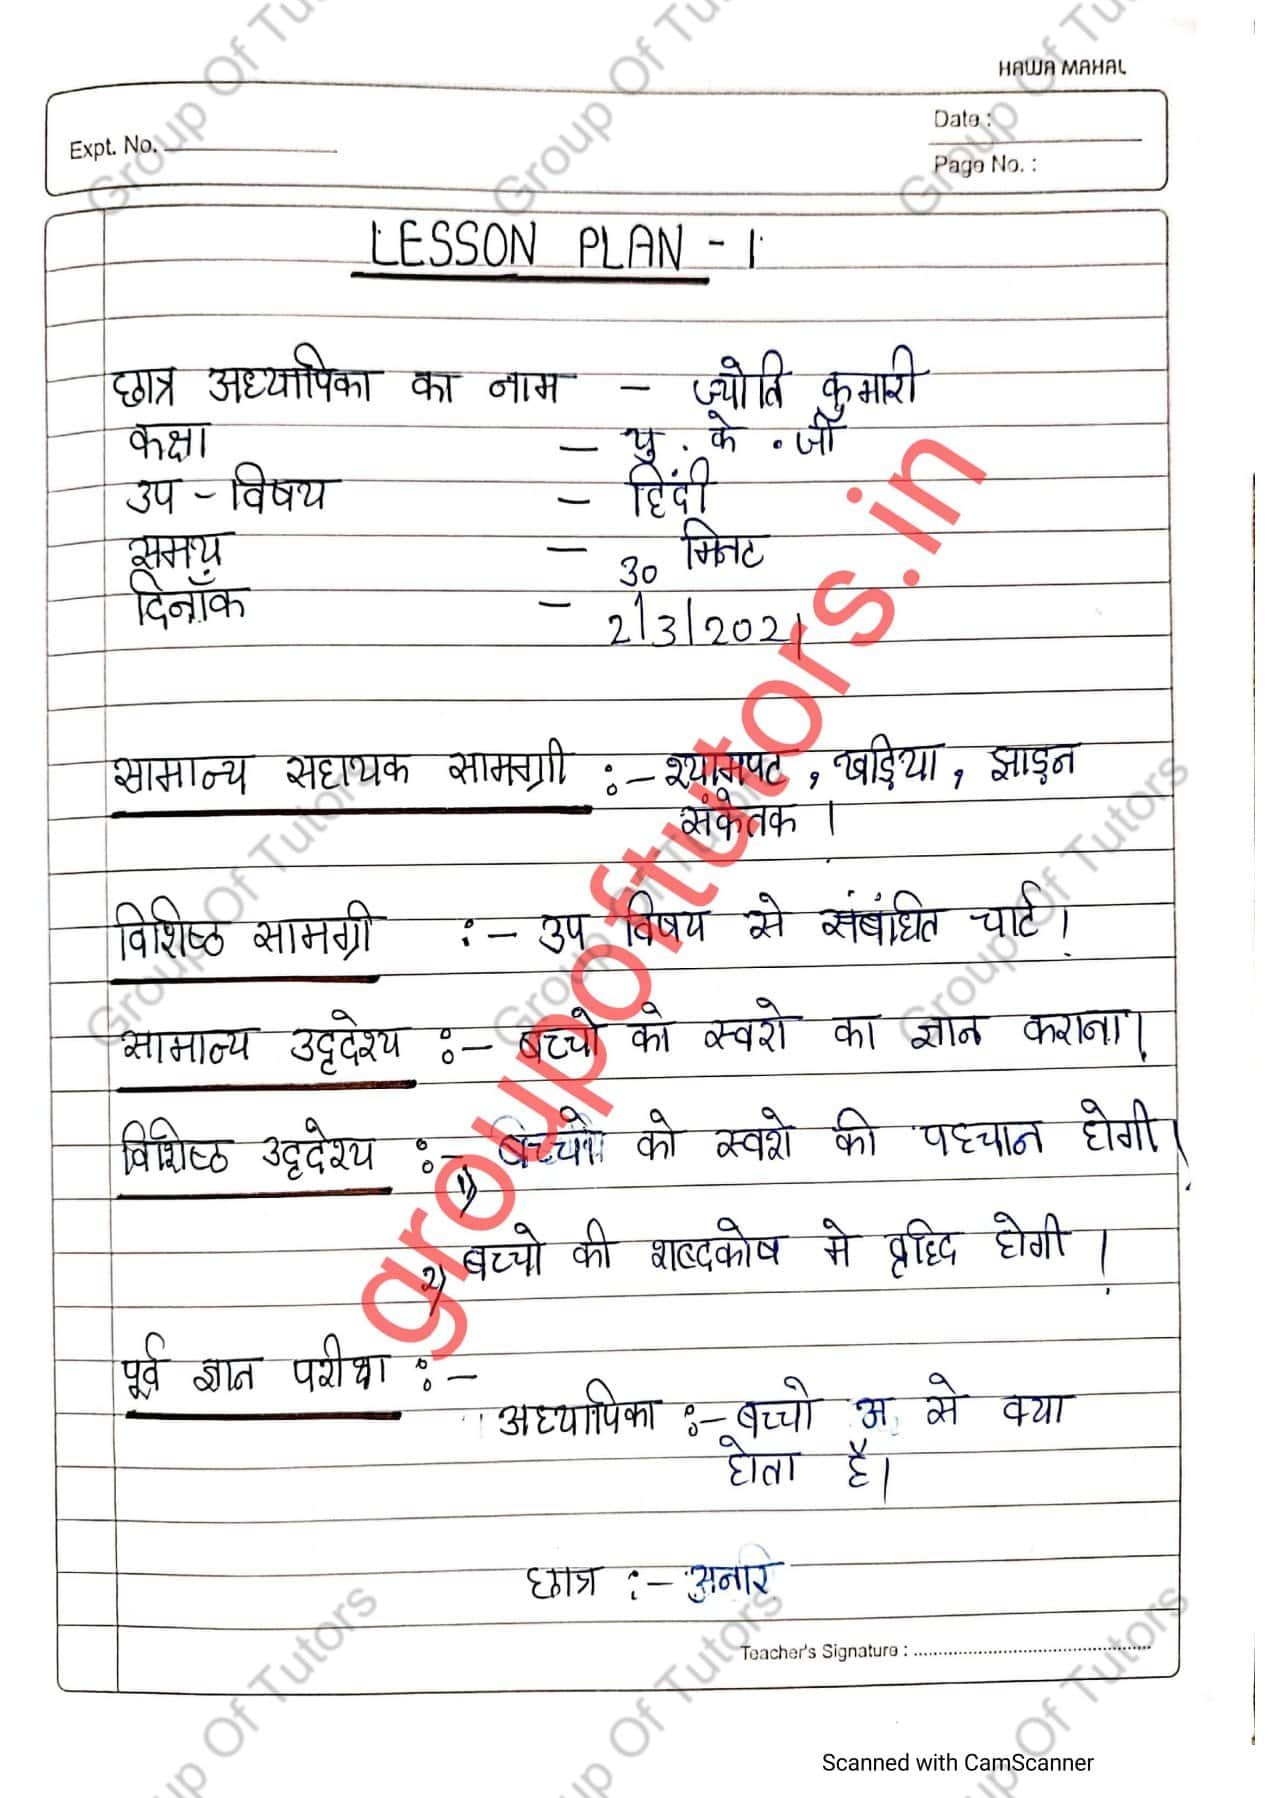 HAWA MAHAL
Expt. No.
Date :
Page No. :
LESSON PLAN - 1
छात्र अध्यापिका का नाम - ज्योति कुमारी
कक्षा - यु. के. जी
उप - विषय - हिंदी
समय - 30 मिनट
दिनाँक - 2/3/2021
सामान्य सहायक सामग्री :- श्यामपट, खड़िया, झाड़न
संकेतक ।
विशिष्ठ सामग्री :- उप विषय से संबंधित चार्ट।
सामान्य उद्देश्य :- बच्चो को स्वरो का ज्ञान कराना।
विशिष्ठ उद्देश्य :- 1) बच्चो को स्वरो की पहचान होगी।
2) बच्चो की शब्दकोष मे वृद्धि होगी ।
पूर्व ज्ञान परीक्षा :-
अध्यापिका :- बच्चो अ से क्या
होता है।
छात्र :- अनार
Teacher's Signature :
Scanned with CamScanner
groupoftutors.in
Group Of Tutors